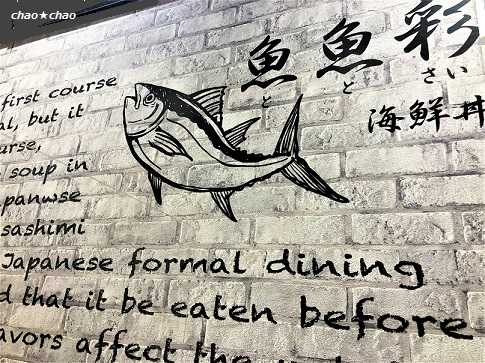 chao★chao
魚魚彩
ととさい
海鮮丼
first course
al, but it
urse,
soup in
panwse
sashimi
Japanese formal dining
d that it be eaten before
avors affect the